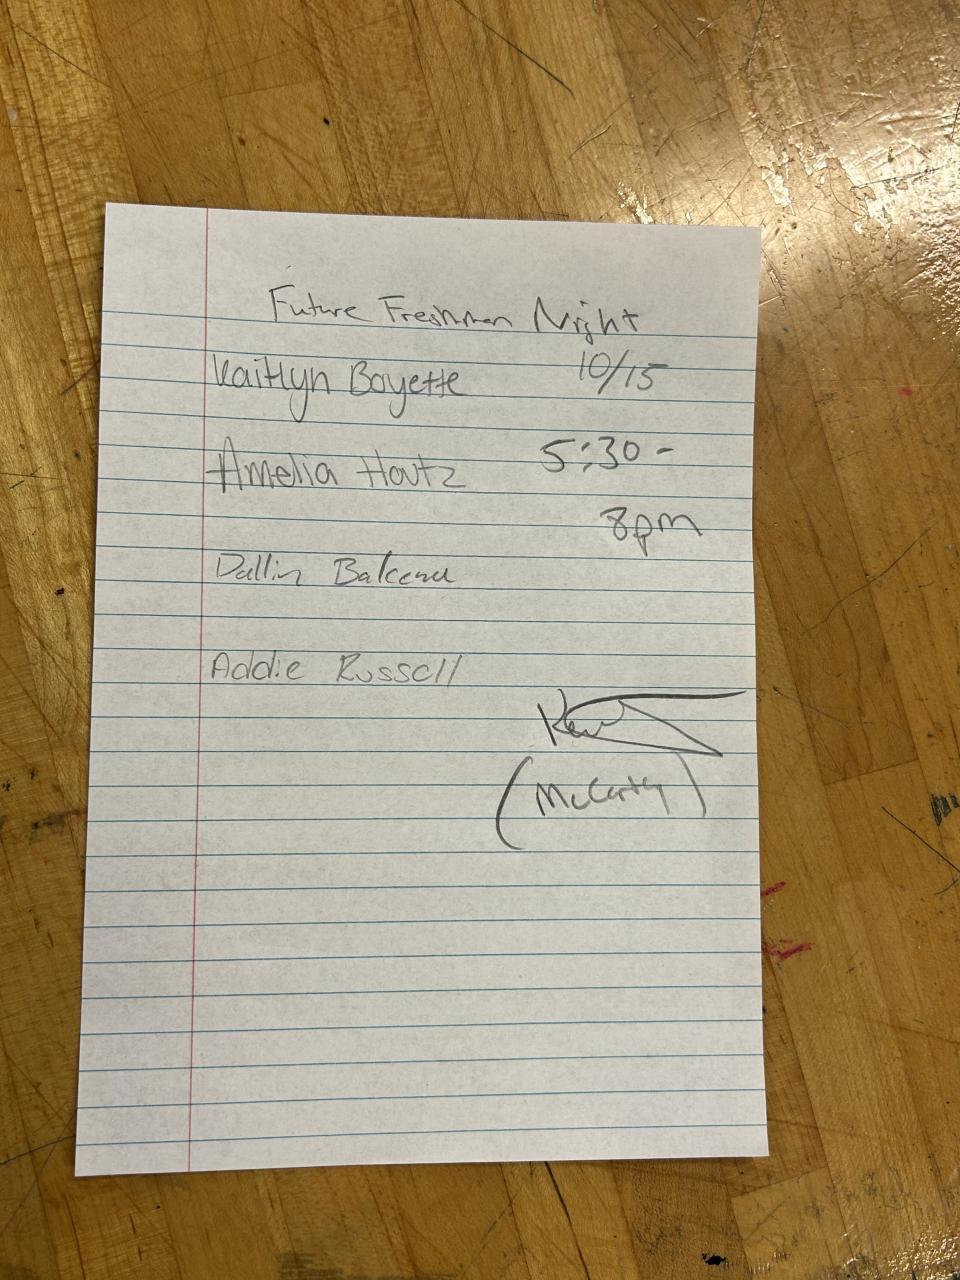 Future Freshmen Night
Kaitlyn Boyette 10/15
Amelia Houtz 5:30 -
8pm
Dallin
Addie Russell
(McCarthy)